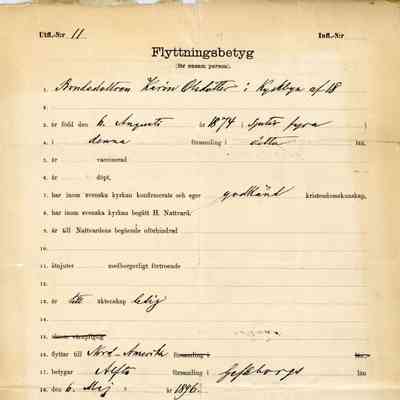 Utfl.-N:r 11 Infl.-N:r
Flyttningsbetyg
(för ensam person).
1. Bondedottren Karin Olsdotter i Kyrkbyn af 18
2.
3. är född den 6. Augusti år 1874 ( sjutio fyra )
4. i denna församling i län,
5. är vaccinerad
6. är döpt,
7. har inom svenska kyrkan konfirmerats och eger godkänd kristendomskunskap,
8. har inom svenska kyrkan begått H. Nattvard,
9. är till Nattvardens begående oförhindrad
10.
11. åtnjuter medborgerligt förtroende
12.
13. är till äktenskap ledig
14.
15.
16. flyttar till Nord-Amerika församling i län.
17. betygar Alfta församling i Gefleborgs län
18. den 6. Maj 1896.